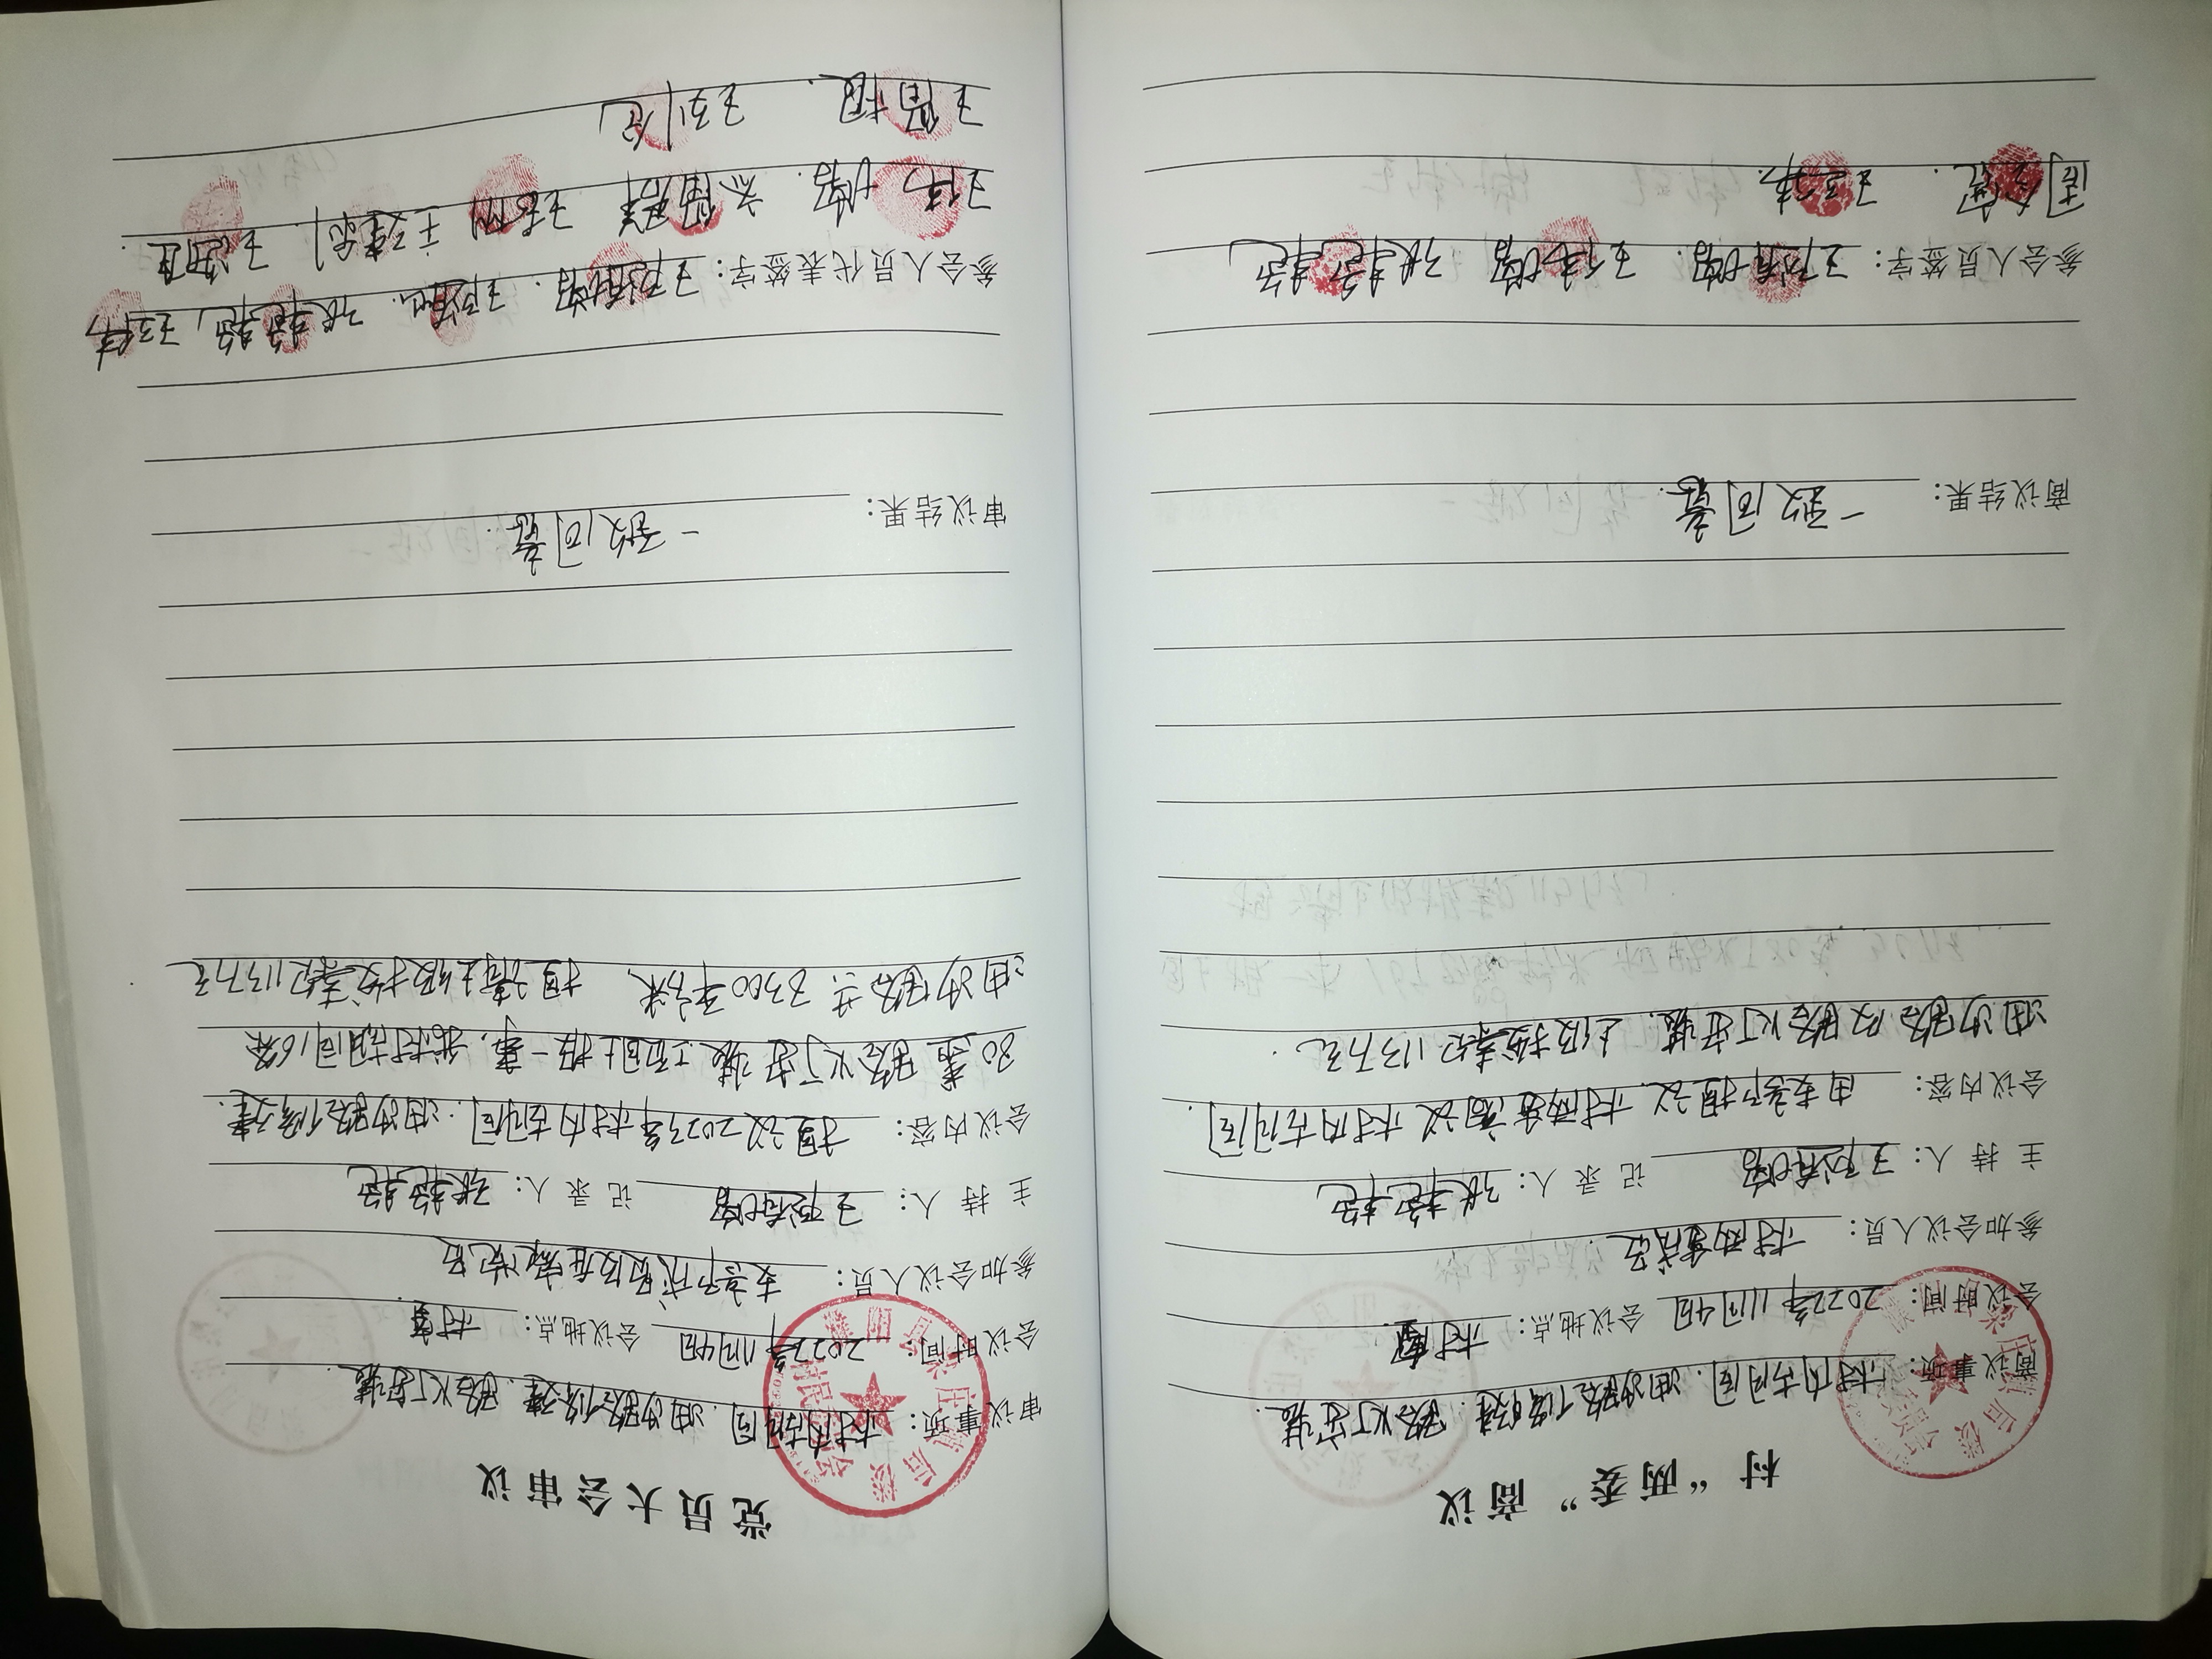 村“两委”商议
商议事项：村内胡同、油沙路修建、路灯安装.
会议时间：2022年11月4日 会议地点：村室.
参加会议人员：村两委成员.
主 持 人：王随增 记 录 人：张艳艳
会议内容：由支部提议、村两委商议 村内胡同、
油沙路及路灯安装、上级拨款113万元.
商议结果：一致同意.
参会人员签字：王随增. 王伟增 张艳艳
周 王 伟.
党员大会审议
审议事项：村内胡同、油沙路修建、路灯安装.
会议时间：2022年11月4日 会议地点：村室.
参加会议人员：支部成员及在家党员
主 持 人：王随增 记 录 人：张艳艳
会议内容：提议2023年村内胡同、油沙路修建、
80盏路灯安装项目上报一事，我村胡同16条
油沙路共8300平方米，提请上级拨款113万元
审议结果：一致同意.
参会人员代表签字：王随增. 王随山. 张艳艳 王 伟
王伟增. 留群 王 王建 . 王
王留根. 王列
后楼